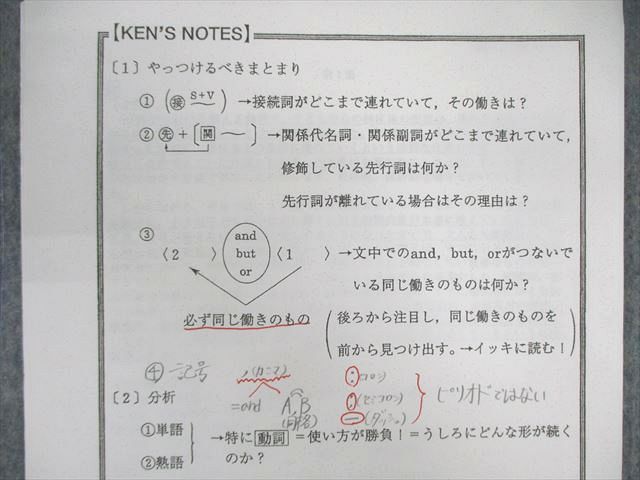 【KEN'S NOTES】
〔1〕やっつけるべきまとまり
① (接 S+V) →接続詞がどこまで連れていて，その働きは？
② 先＋〔関 〕→関係代名詞・関係副詞がどこまで連れていて，
修飾している先行詞は何か？
先行詞が離れている場合はその理由は？
③
〈2 〉 and but or 〈1 〉→文中でのand，but，orがつないで
いる同じ働きのものは何か？
必ず同じ働きのもの
(後ろから注目し，同じ働きのものを
前から見つけ出す。→イッキに読む！)
④ 記号 , (カンマ) : (コロン)
=and A, B (同格) ; (セミコロン) ピリオドではない
— (ダッシュ)
〔2〕分析
①単語
②熟語
→特に動詞＝使い方が勝負！＝うしろにどんな形が続く
のか？